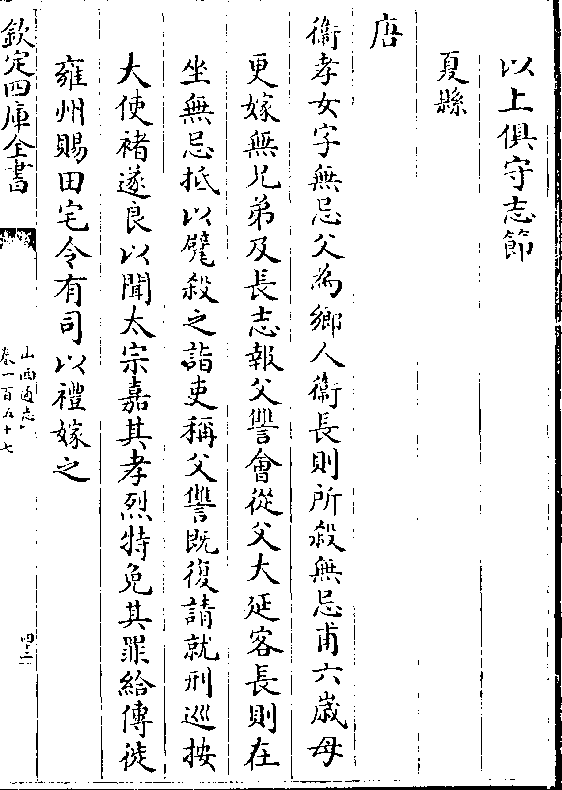 以上俱守志節
夏縣
唐
衞孝女字無忌父為鄉人衞長則所殺無忌甫六歲母
更嫁無兄弟及長志報父讐會從父大延客長則在
坐無忌抵以甓殺之詣吏稱父讐既復請就刑巡按
大使褚遂良以聞太宗嘉其孝烈特免其罪給傳徙
雍州賜田宅令有司以禮嫁之
欽定四庫全書
山西通志
卷一百五十七